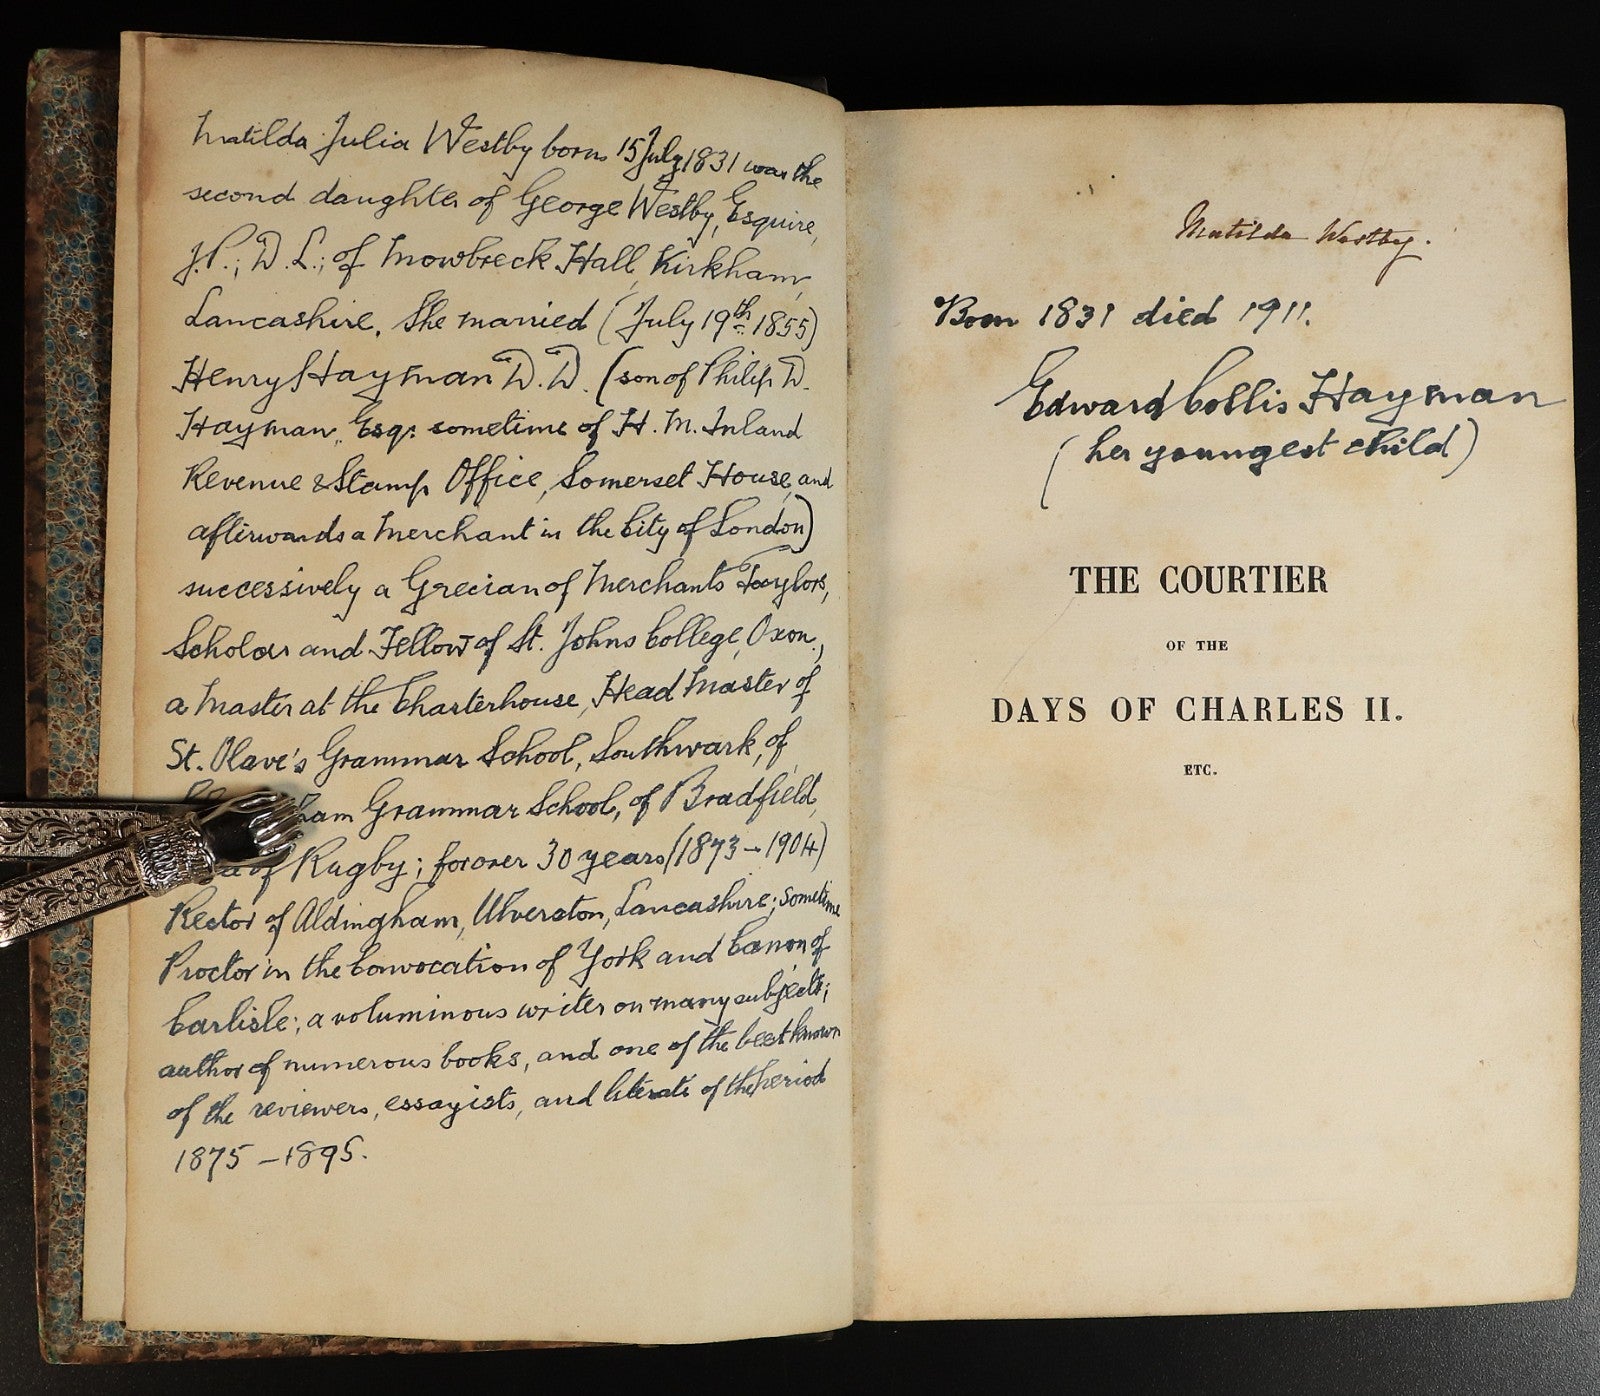 Matilda Julia Westby born 15 July 1831 was the
second daughter of George Westby, Esquire,
J.P.; D.L.; of Mowbreck Hall, Kirkham,
Lancashire. She married (July 19th 1855)
Henry Hayman D.D. (son of Philip D.
Hayman, Esqr. sometime of H.M. Inland
Revenue & Stamp Office, Somerset House, and
afterwards a Merchant in the City of London)
successively a Grecian of Merchants Taylors,
Scholar and Fellow of St. Johns College, Oxon.,
a Master at the Charterhouse, Head Master of
St. Olave's Grammar School, Southwark, of
Grammar School, of Bradfield,
of Rugby; for over 30 years (1873-1904)
Rector of Aldingham, Ulverston, Lancashire; sometime
Proctor in the Convocation of York and Canon of
Carlisle; a voluminous writer on many subjects;
author of numerous books, and one of the best known
of the reviewers, essayists, and literati of the period
1875-1895.
Matilda Westby.
Born 1831 died 1911.
Edward Collis Hayman
(her youngest child)
THE COURTIER
OF THE
DAYS OF CHARLES II.
ETC.